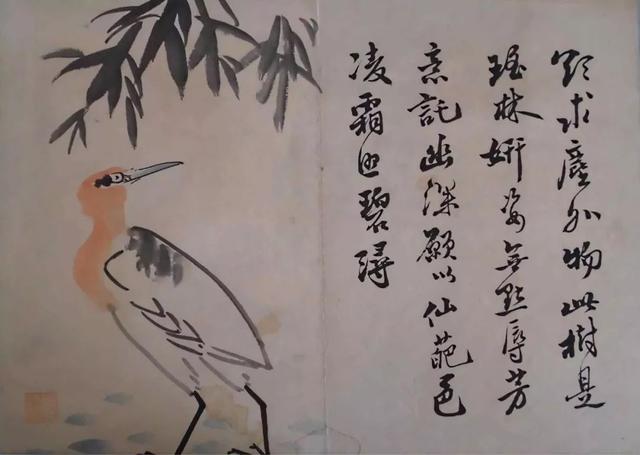 欲求塵外物此樹是
瑶林妍姿無點辱芳
意託幽深願以仙葩色
凌霜碧潯